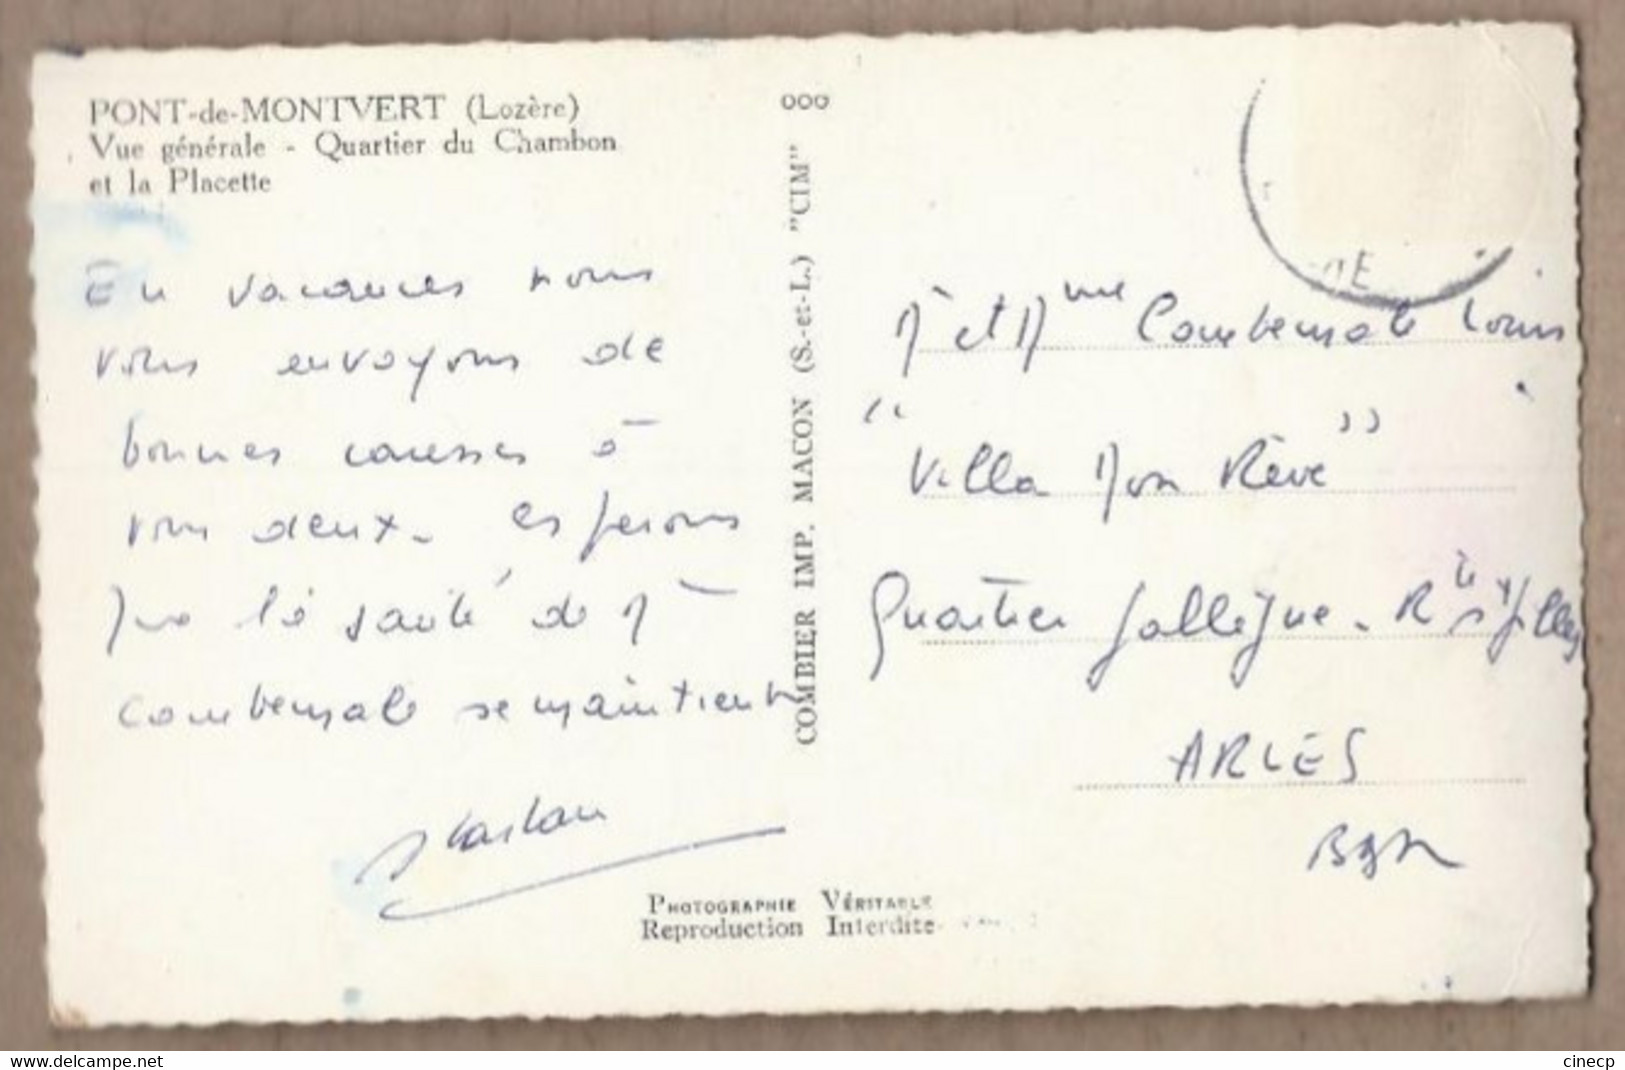 PONT-de-MONTVERT (Lozère)
Vue générale - Quartier du Chambon
et la Placette
En vacances nous
vous envoyons de
bonnes caresses à
vous deux. espérons
que la santé de Mr
Combemale se maintient
COMBIER IMP. MACON (S.-et-L.) "CIM"
000
Mr et Mme Combemale Louis
"Villa Mon Rêve"
Quartier Gallègue. Rte St Gilles
ARLES
BdR
PHOTOGRAPHIE VÉRITABLE
Reproduction Interdite
www.delcampe.net
cinecp